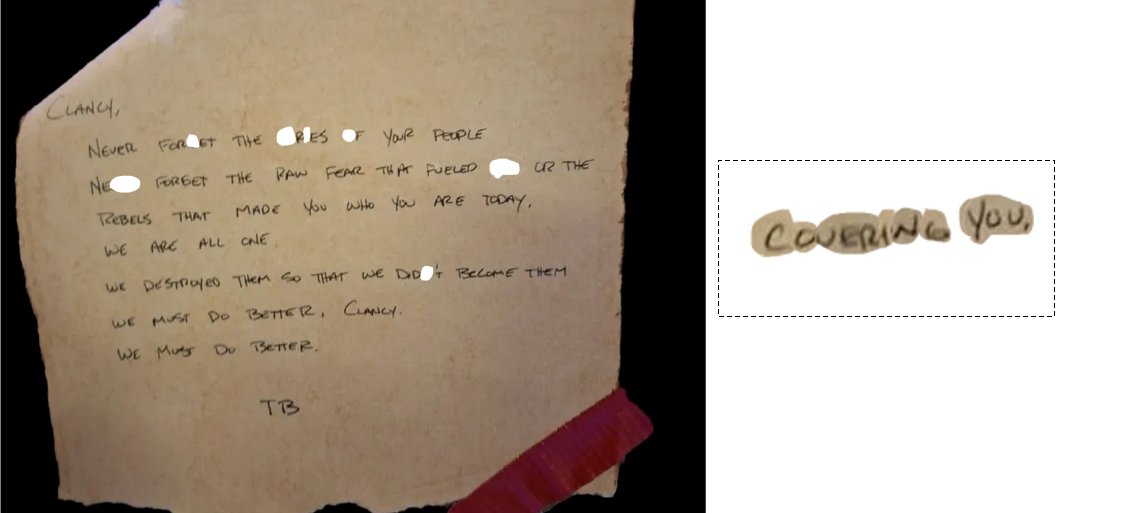 CLANCY,
NEVER FOR ET THE RIES F YOUR PEOPLE
NE FORGET THE RAW FEAR THAT FUELED OR THE
REBELS THAT MADE YOU WHO YOU ARE TODAY.
WE ARE ALL ONE
WE DESTROYED THEM SO THAT WE DID 'T BECOME THEM
WE MUST DO BETTER, CLANCY.
WE MUST DO BETTER.
TB
COVERING YOU.